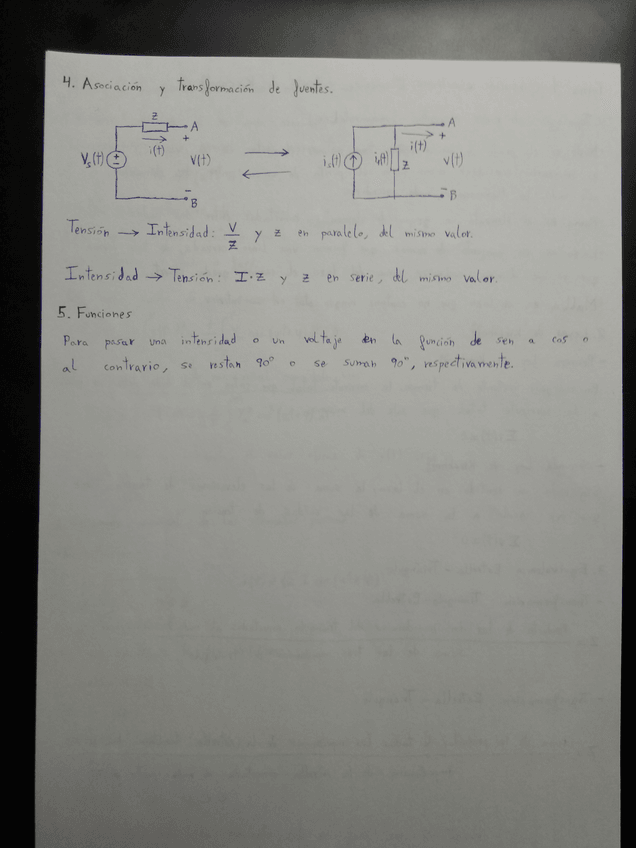 4. Asociación y transformación de fuentes.
Z A A
+ i(t) +
Vs(t) i(t) V(t) is(t) i1(t) Z V(t)
- B - B
Tensión → Intensidad: V/Z y z en paralelo, del mismo valor.
Intensidad → Tensión: I·Z y z en serie, del mismo valor.
5. Funciones
Para pasar una intensidad o un voltaje en la función de sen a cos o
al contrario, se restan 90° o se suman 90°, respectivamente.